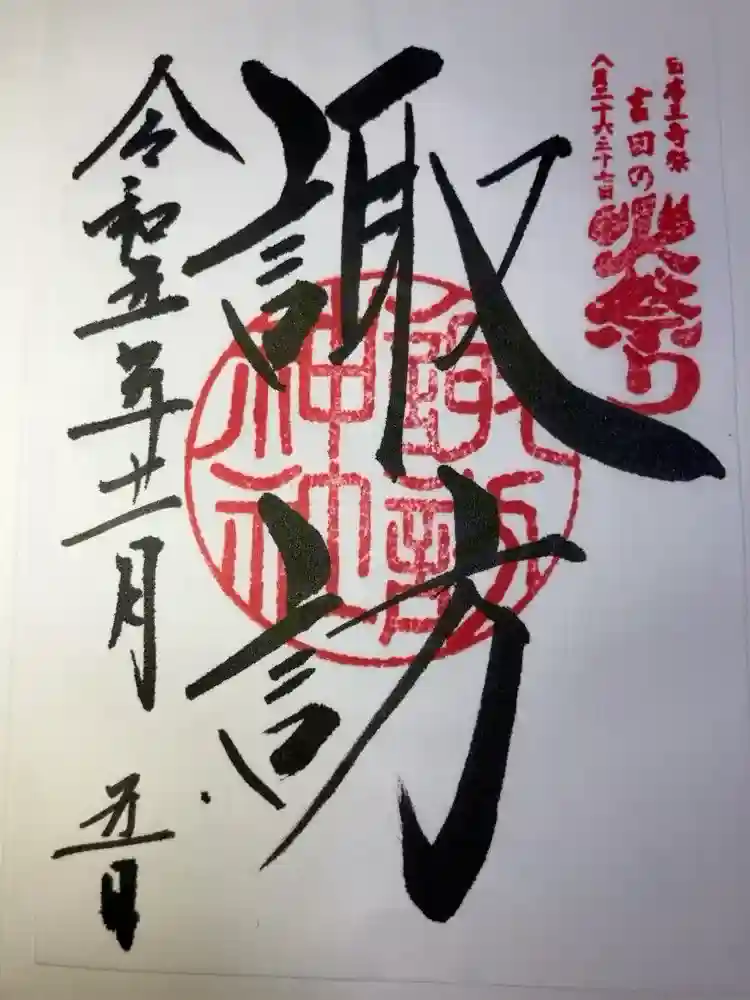 日本三奇祭
吉田の火祭り
八月二十六二十七日
諏訪
諏訪
神社
令和五年十一月五日